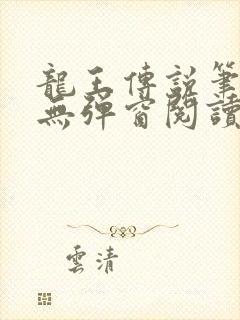 龍王傳説筆
無彈窗閱讀
雲清